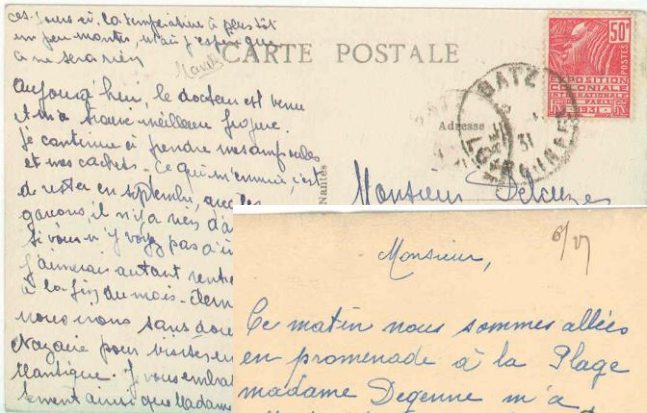 ces jours ci, la température a plutôt
un peu montée, mais j'espère que
ce ne sera rien
Mardi
CARTE POSTALE
Aujourd'hui, le docteur est venu
et m'a trouvé meilleure figure.
je continue à prendre mes ampoules
et mes cachets. Ce qui m'ennuie, c'est
de rester en septembre, avec les
garçons, il n'y a rien d'a
si vous n'y voyez pas d'i
j'aimerais autant rentre
à la fin du mois.
nous irons sans dou
Nazaire pour visiter un
tlantique. Je vous embra
ement ainsi que Madame
Adresse
Nantes
BATZ
LOIRE
31
50c
POSTES
EXPOSITION
COLONIALE
INTERNATIONALE
PARIS
1931
Monsieur Deleuzes
Monsieur,
Ce matin nous sommes allées
en promenade à la Plage
madame Degenne m'a